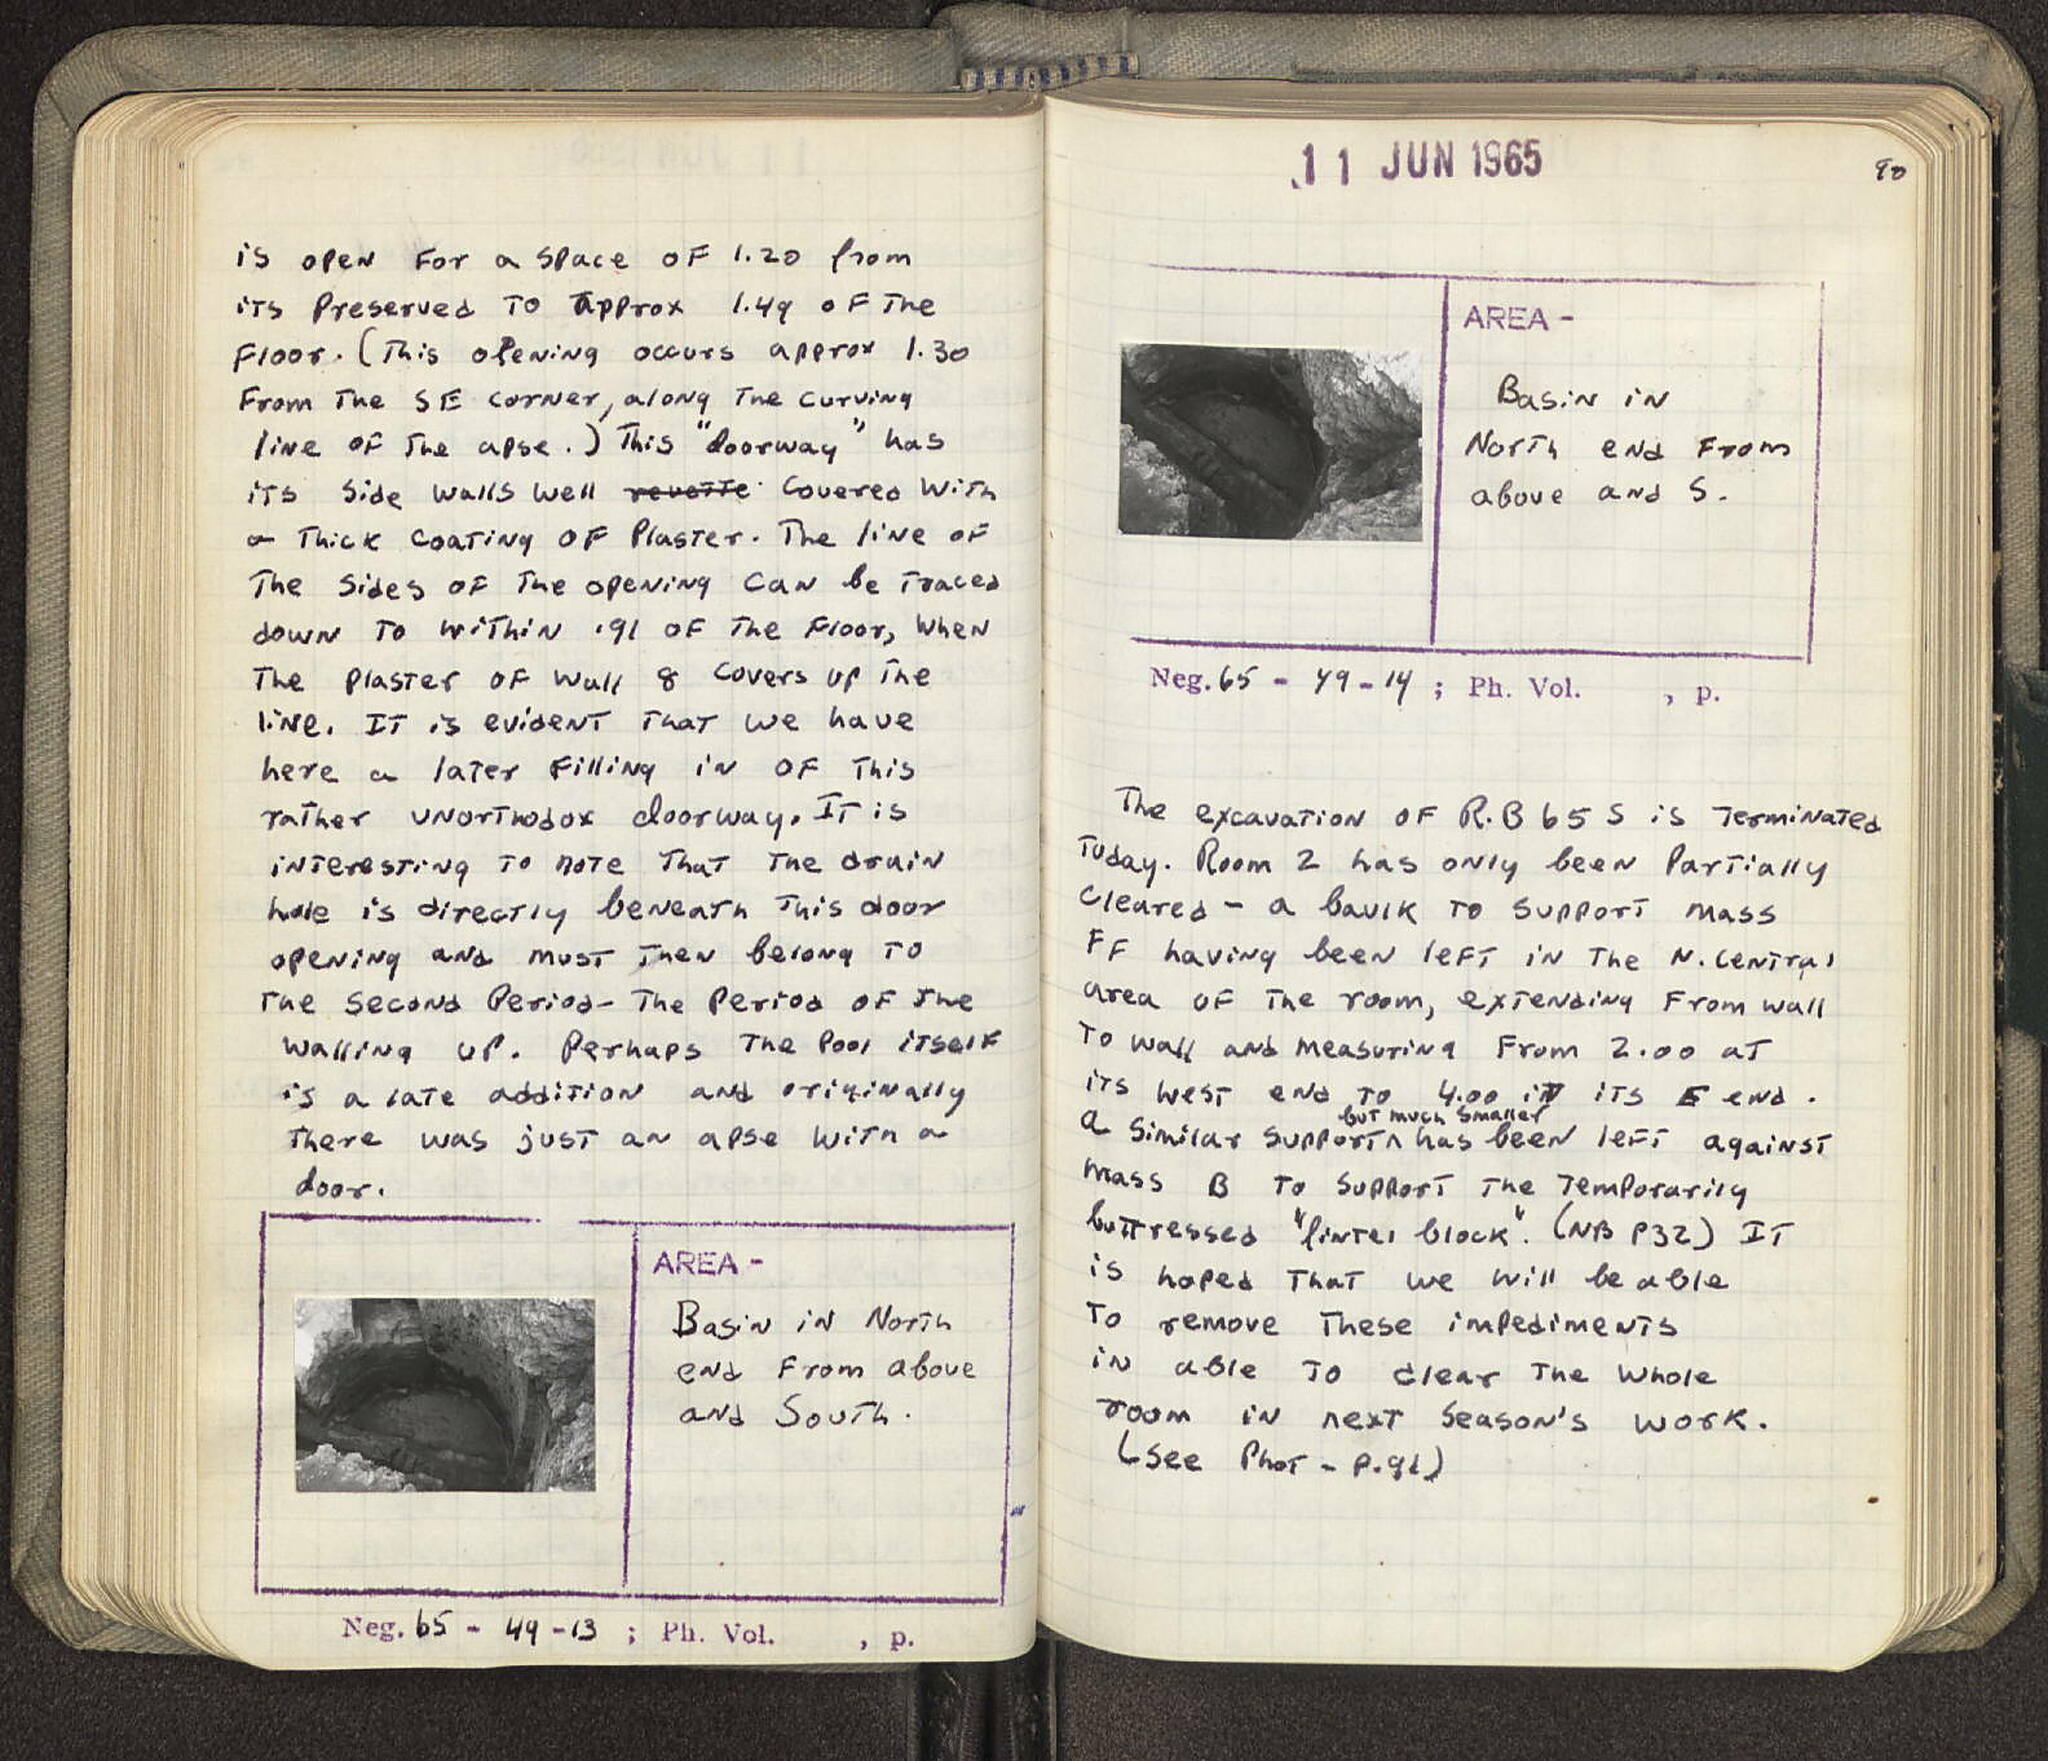 is open for a space of 1.20 from
its preserved to approx 1.49 of the
floor. (This opening occurs approx 1.30
from the SE corner, along the curving
line of the apse.) This "doorway" has
its side walls well revette covered with
a thick coating of plaster. The line of
the sides of the opening can be traced
down to within .91 of the floor, when
the plaster of wall 8 covers up the
line. It is evident that we have
here a later filling in of this
rather unorthodox doorway. It is
interesting to note that the drain
hole is directly beneath this door
opening and must then belong to
the second period - the period of the
walling up. Perhaps the pool itself
is a late addition and originally
there was just an apse with a
door.
AREA -
Basin in North
end from above
and South.
Neg. 65 - 49 - 13 ; Ph. Vol. , p.
11 JUN 1965
90
AREA -
Basin in
North end from
above and S.
Neg. 65 - 49 - 14 ; Ph. Vol. , p.
The excavation of R.B 65 S is terminated
today. Room 2 has only been partially
cleared - a baulk to support mass
FF having been left in the N. central
area of the room, extending from wall
to wall and measuring from 2.00 at
its west end to 4.00 in its E end.
but much smaller
a similar support ^ has been left against
mass B to support the temporarily
buttressed "lintel block". (NB P32) It
is hoped that we will be able
to remove these impediments
in able to clear the whole
room in next season's work.
(see Phot - p.91)